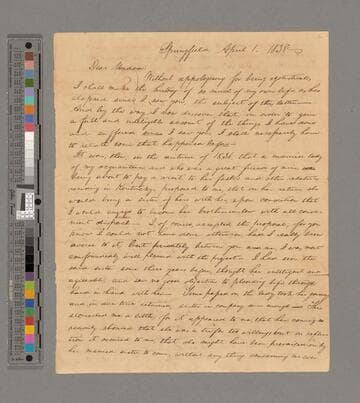 Springfield, April 1. 1838.
Dear Madam:
Without appologising for being egotistical,
I shall make the history of so much of my own life, as has
elapsed since I saw you, the subject of this letter—
And by the way I now discover, that, in order to give
a full and inteligible account of the things I have done
and suffered since I saw you, I shall necessarily have
to relate some that happened before—
It was, then, in the autumn of 1836, that a married lady
of my acquaintance, and who was a great friend of mine,
being about to pay a visit to her father and other relatives
residing in Kentucky, proposed to me, that on her return she
would bring a sister of hers with her, upon condition that
I would engage to become her brother-in-law with all conve-
nient dispatch— I, of course, accepted the proposal; for you
know I could not have done otherwise, had I really been
averse to it; but privately between you and me, I was most
confoundedly well pleased with the project— I had seen the
said sister some three years before, thought her inteligent and
agreeable, and saw no good objection to plodding life through
hand in hand with her— Time passed on, the lady took her journey
and in due time returned, sister in company sure enough— This
stomached me a little; for it appeared to me, that her coming so
readily showed that she was a trifle too willing; but on reflec-
tion it occured to me, that she might have been prevailed on by
her married sister to come, without any thing concerning me ever